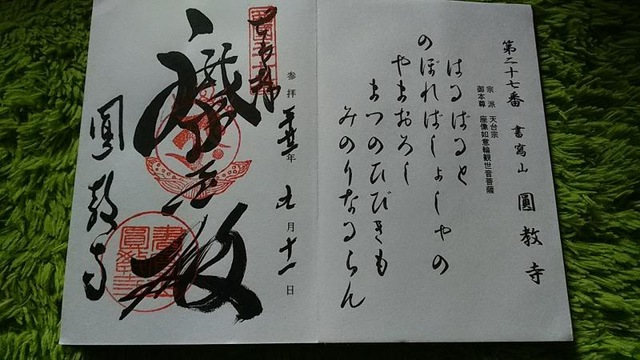 第二十七番 書寫山 圓教寺
宗派 天台宗
御本尊 座像如意輪観世音菩薩
はるばると
のぼればしょしゃの
やまおろし
まつのひびきも
みのりなるらん
参拝 年 七月十一日
圓教寺